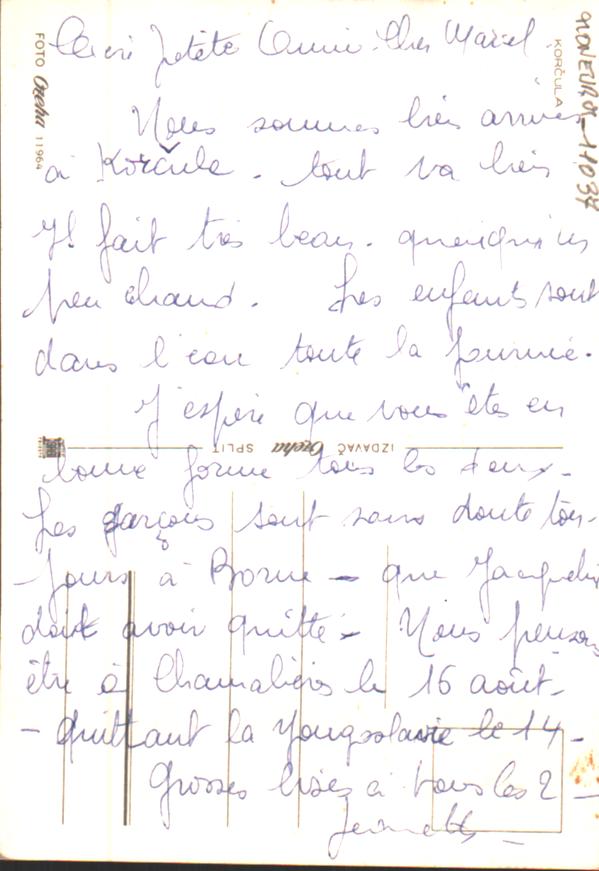 Chère petite Annie. Cher Marcel.
Nous sommes bien arrivés
à Korčula. tout va bien
Il fait très beau. quoiqu'un
peu chaud. Les enfants sont
dans l'eau toute la journée.
J'espère que vous êtes en
bonne forme tous les deux.
Les garçons sont sans doute tou-
-jours à Borne - que Jacqueline
doit avoir quitté - Nous pensons
être à Chamalières le 16 août.
- quittant la Yougoslavie le 14 -
Grosses bises à tous les 2 -
FOTO Oreha 11964
KORČULA
MONEUR01-11034
IZDAVAČ Oreha SPLIT